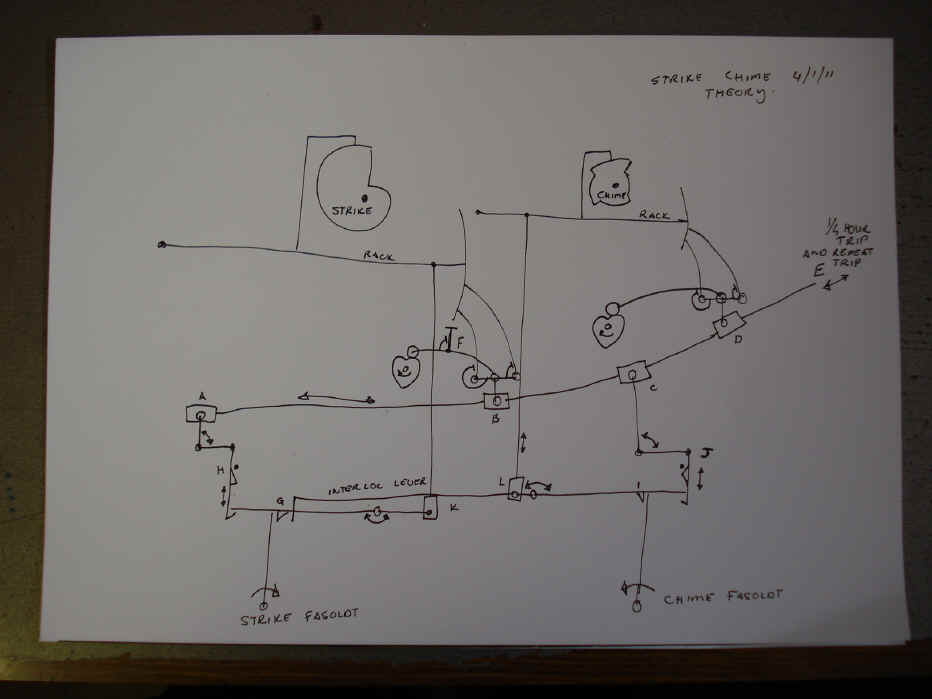 STRIKE CHIME 4/1/11
THEORY.
STRIKE
CHIME
RACK
RACK
1/4 HOUR
TRIP
AND REPEAT
TRIP
E
D
F
C
A
B
H
J
G
INTERLOC LEVER
L
I
K
STRIKE FASOLDT
CHIME FASOLDT